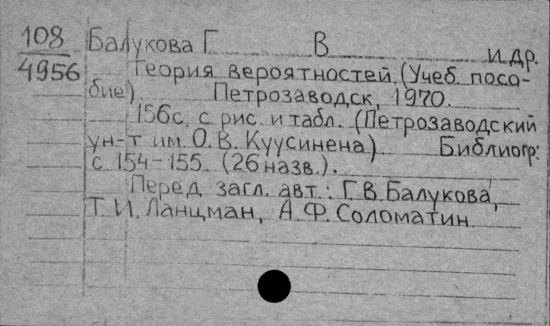 108 Балукова Г. В и др.
4956 Теория вероятностей. (Учеб. посо-
бие). Петрозаводск, 1970.
156с. с рис. и табл. (Петрозаводский
ун-т им. О. В. Куусинена). Библиогр:
с. 154-155. (26 назв.).
Перед загл. авт.: Г.В. Балукова,
Т. И. Ланцман, А. Ф. Соломатин.